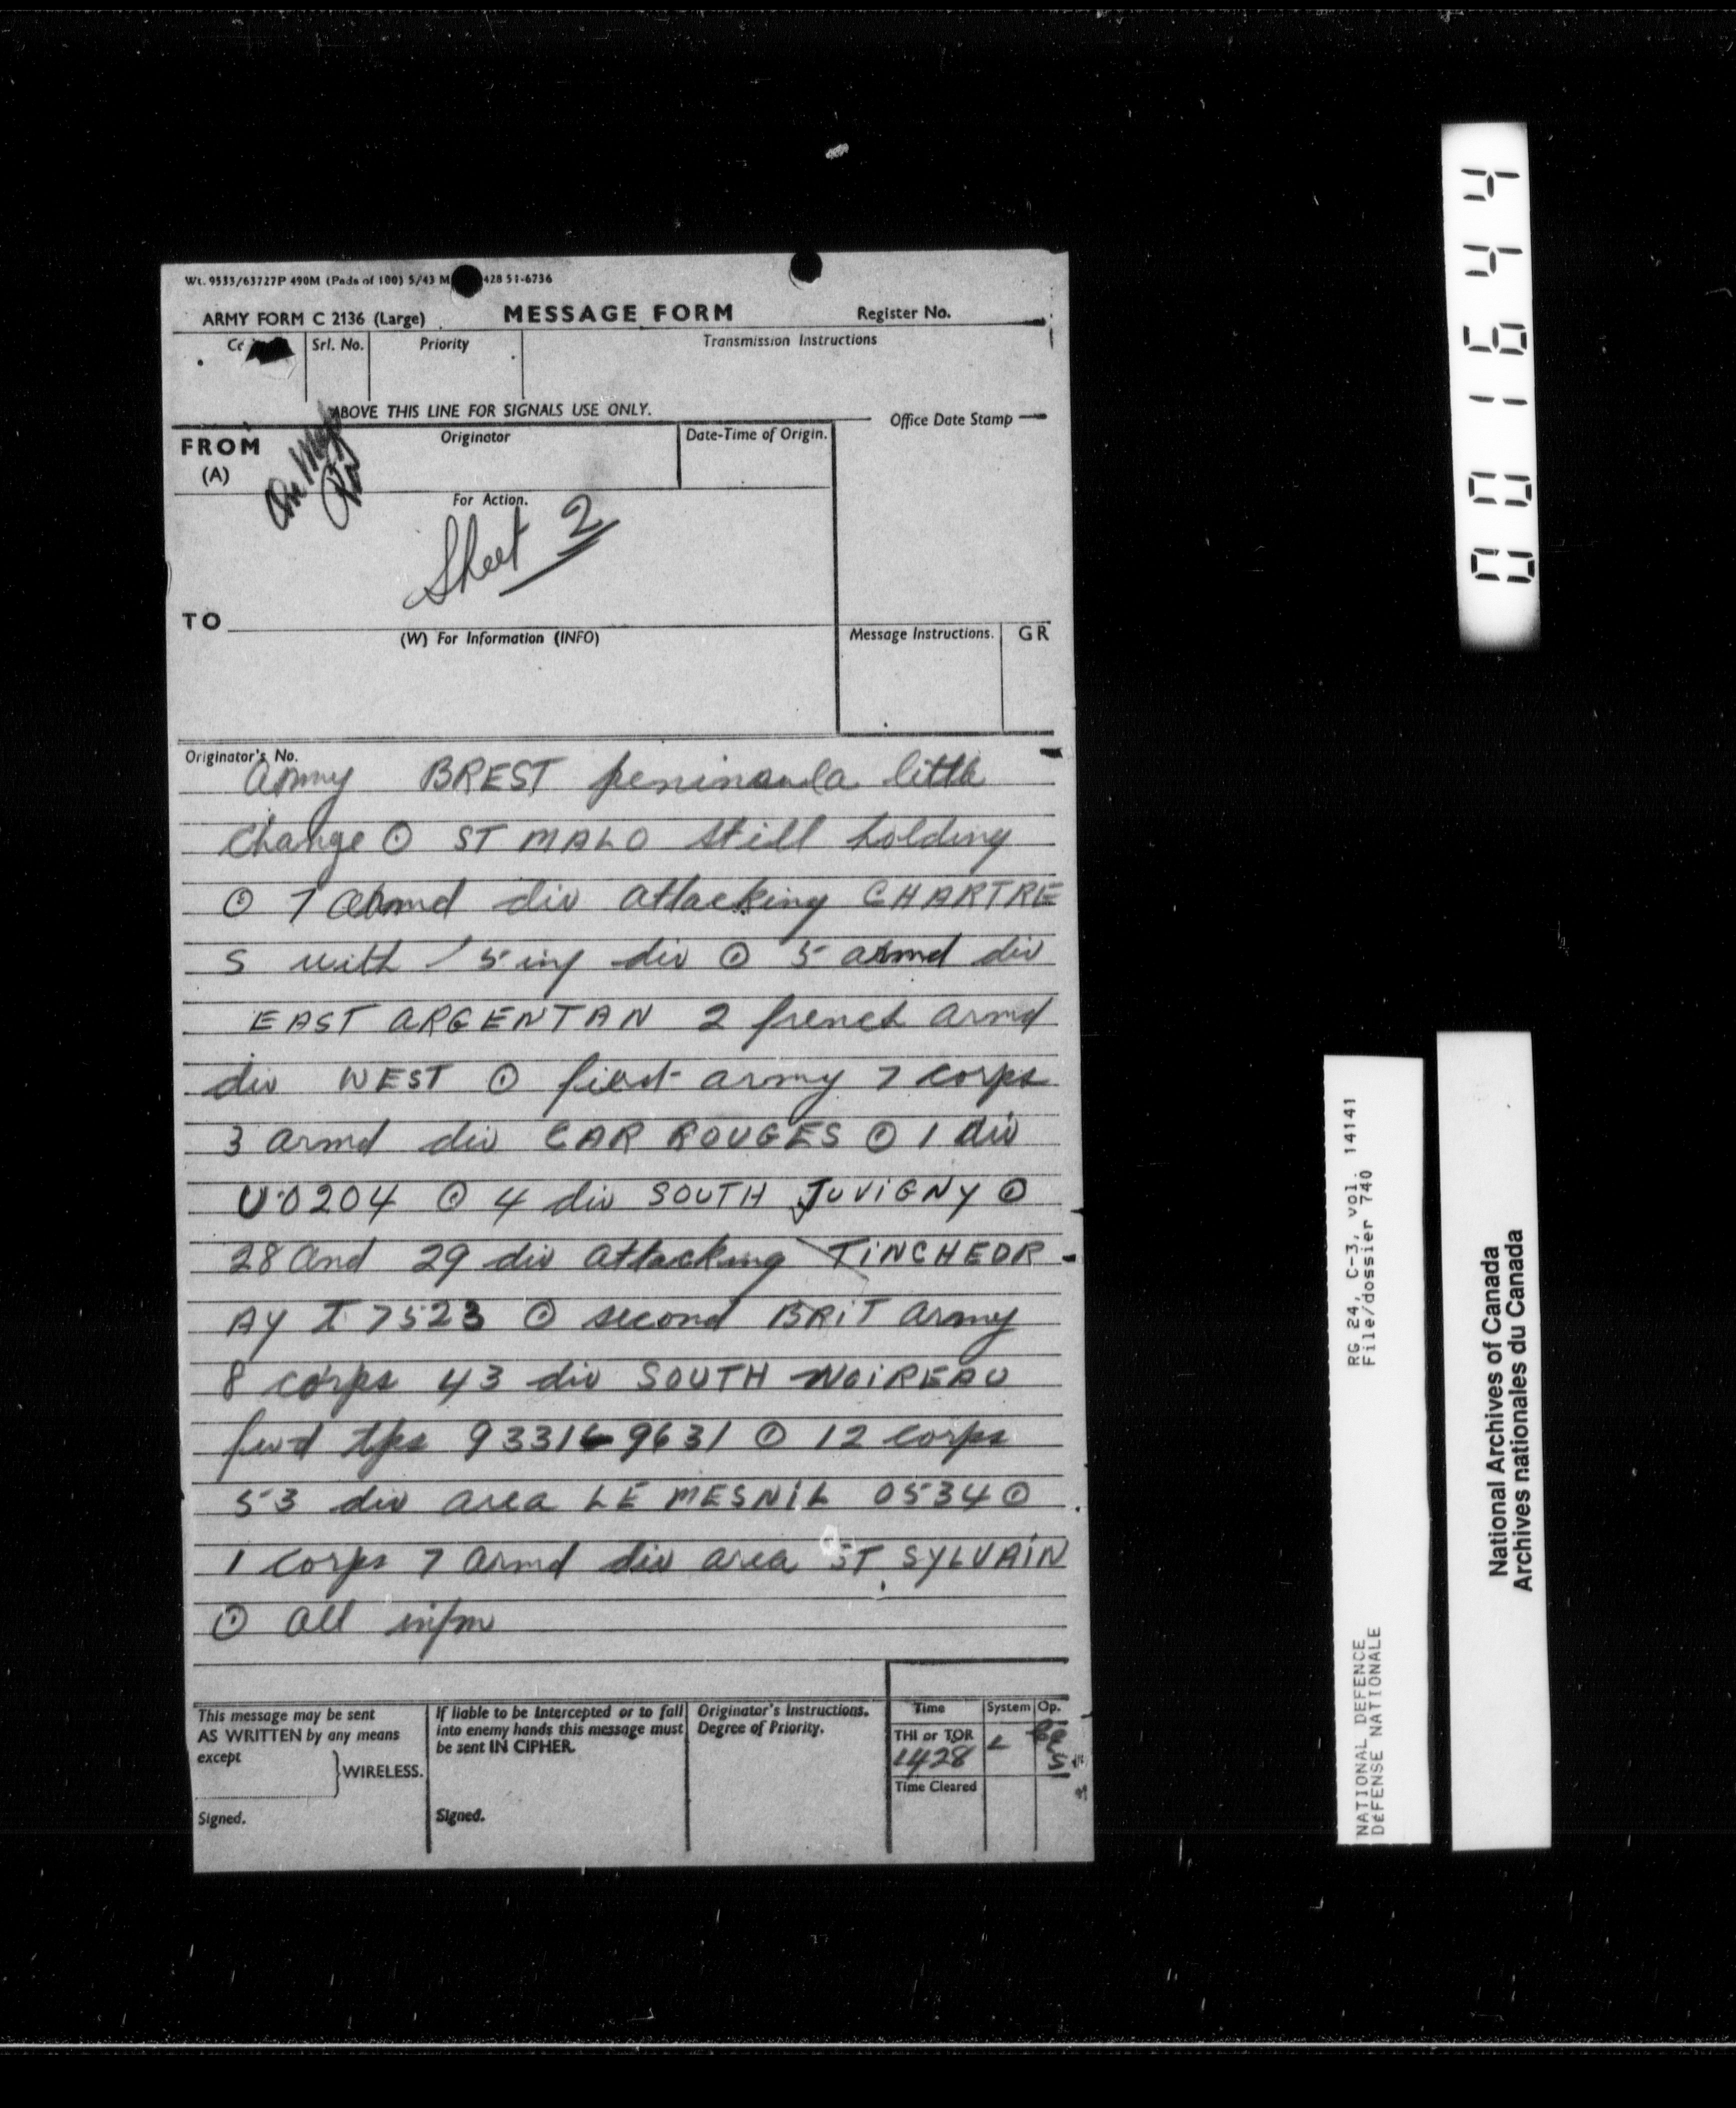 Wt. 9533/63727P 490M (Pads of 100) 5/43 M 428 51-6736
ARMY FORM C 2136 (Large) MESSAGE FORM Register No.
Srl. No. Priority Transmission Instructions
ABOVE THIS LINE FOR SIGNALS USE ONLY.
Office Date Stamp
FROM (A) Originator Date-Time of Origin.
On Map
For Action.
Sheet 2
TO
(W) For Information (INFO) Message Instructions. GR
Originator's No.
Army BREST peninsula little
change ⊙ ST MALO still holding
⊙ 7 armd div attacking CHARTRE
S with 5 inf div ⊙ 5 armd div
EAST ARGENTAN 2 french armd
div WEST ⊙ first army 7 corps
3 armd div CAR ROUGES ⊙ 1 div
U 0204 ⊙ 4 div SOUTH JUVIGNY ⊙
28 and 29 div attacking TINCHEDR
AY T 7523 ⊙ second BRIT army
8 corps 43 div SOUTH NOIREAU
fwd tps 9331 - 9631 ⊙ 12 corps
53 div area LE MESNIL 0534 ⊙
1 corps 7 armd div area ST SYLVAIN
⊙ all infm
This message may be sent
AS WRITTEN by any means
except
WIRELESS.
Signed.
If liable to be intercepted or to fall
into enemy hands this message must
be sent IN CIPHER.
Signed.
Originator's Instructions.
Degree of Priority.
Time System Op.
THI or TOR
1428 L
Time Cleared
001644
RG 24, C-3, vol. 14141
File/dossier 740
NATIONAL DEFENCE
DÉFENSE NATIONALE
National Archives of Canada
Archives nationales du Canada